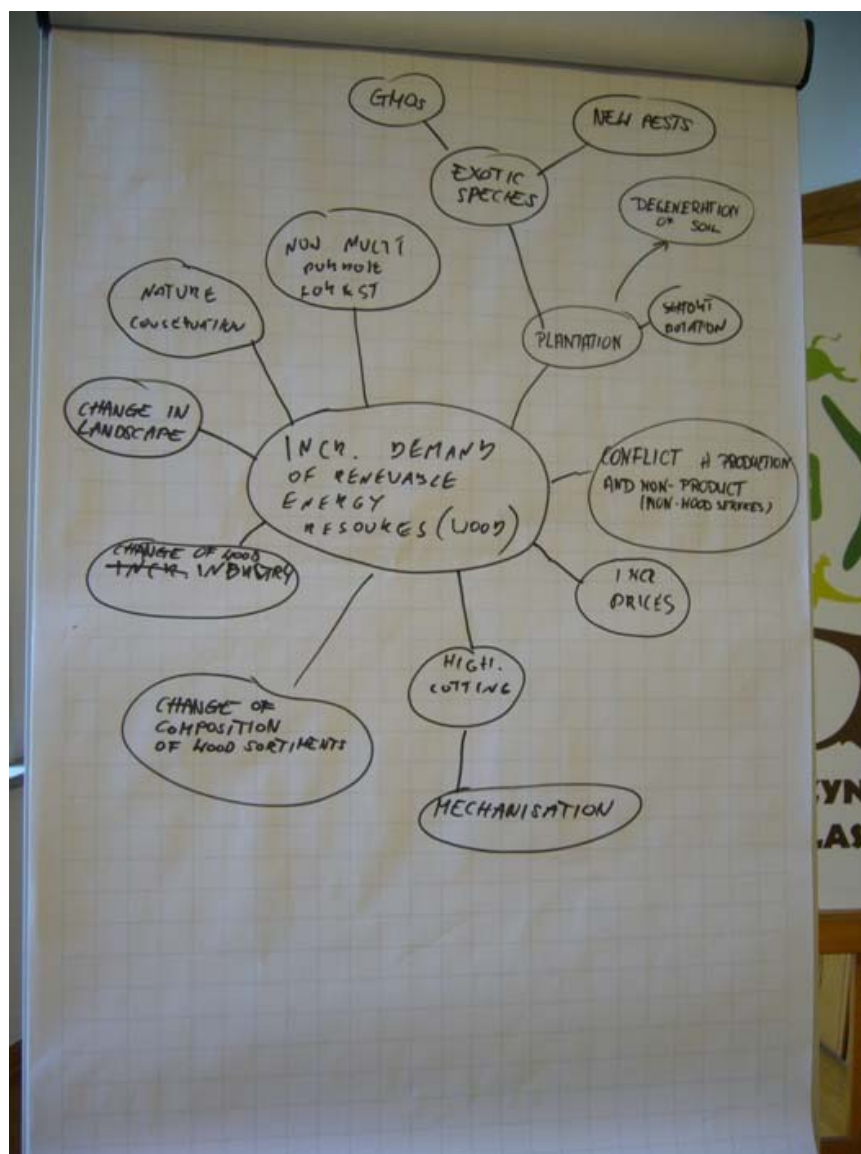 GMOs
NEW PESTS
EXOTIC
SPECIES
DEGENERATION
OF SOIL
NON MULTI
PURPOSE
FOREST
NATURE
CONSERVATION
SHORT
ROTATION
PLANTATION
CHANGE IN
LANDSCAPE
INCR. DEMAND
OF RENEVABLE
ENERGY
RESOURCES (WOOD)
CONFLICT PRODUCTION
AND NON-PRODUCT
(NON-WOOD SERVICES)
CHANGE OF WOOD
INCR. INDUSTRY
INCR
PRICES
HIGH.
CUTTING
CHANGE OF
COMPOSITION
OF WOOD SORTIMENTS
MECHANISATION